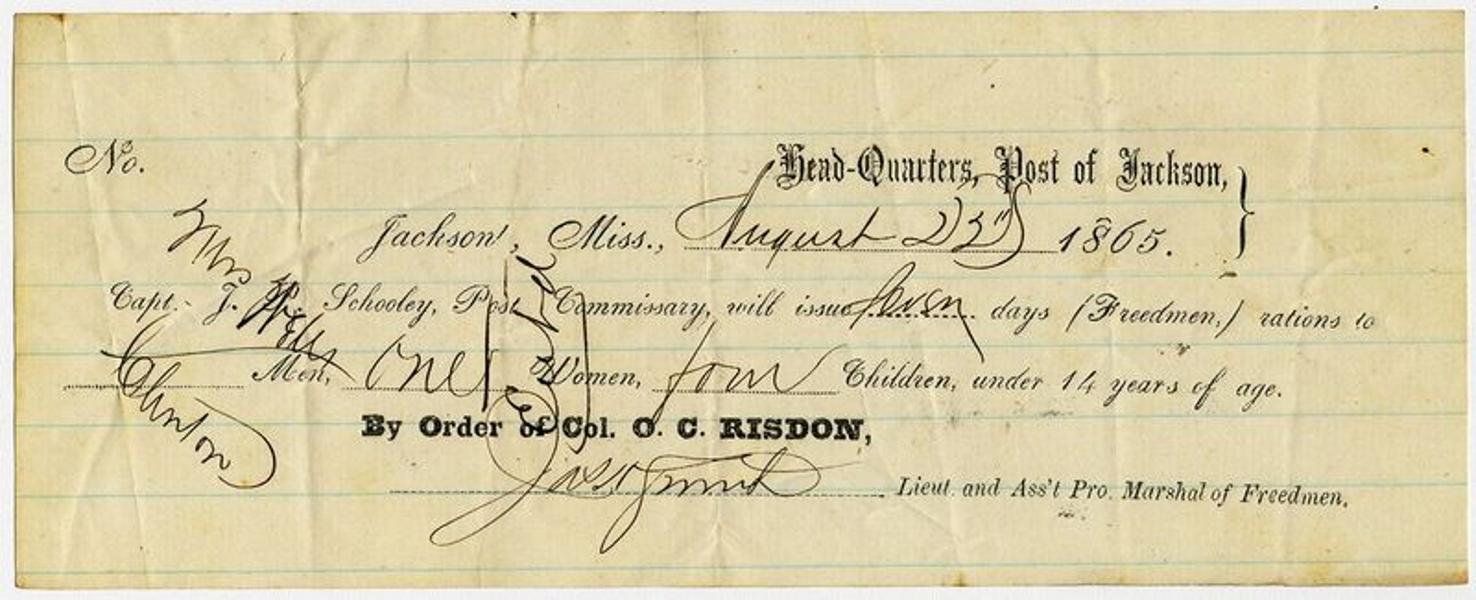 No.
Head-Quarters, Post of Jackson,
Jackson, Miss., August 23d 1865.
Capt. J. W. Schooley, Post Commissary, will issue Seven days (Freedmen,) rations to
Men, One Women, four Children, under 14 years of age.
By Order of Col. O. C. RISDON,
Lieut. and Ass't Pro. Marshal of Freedmen.
Mrs
Wells
Clinton